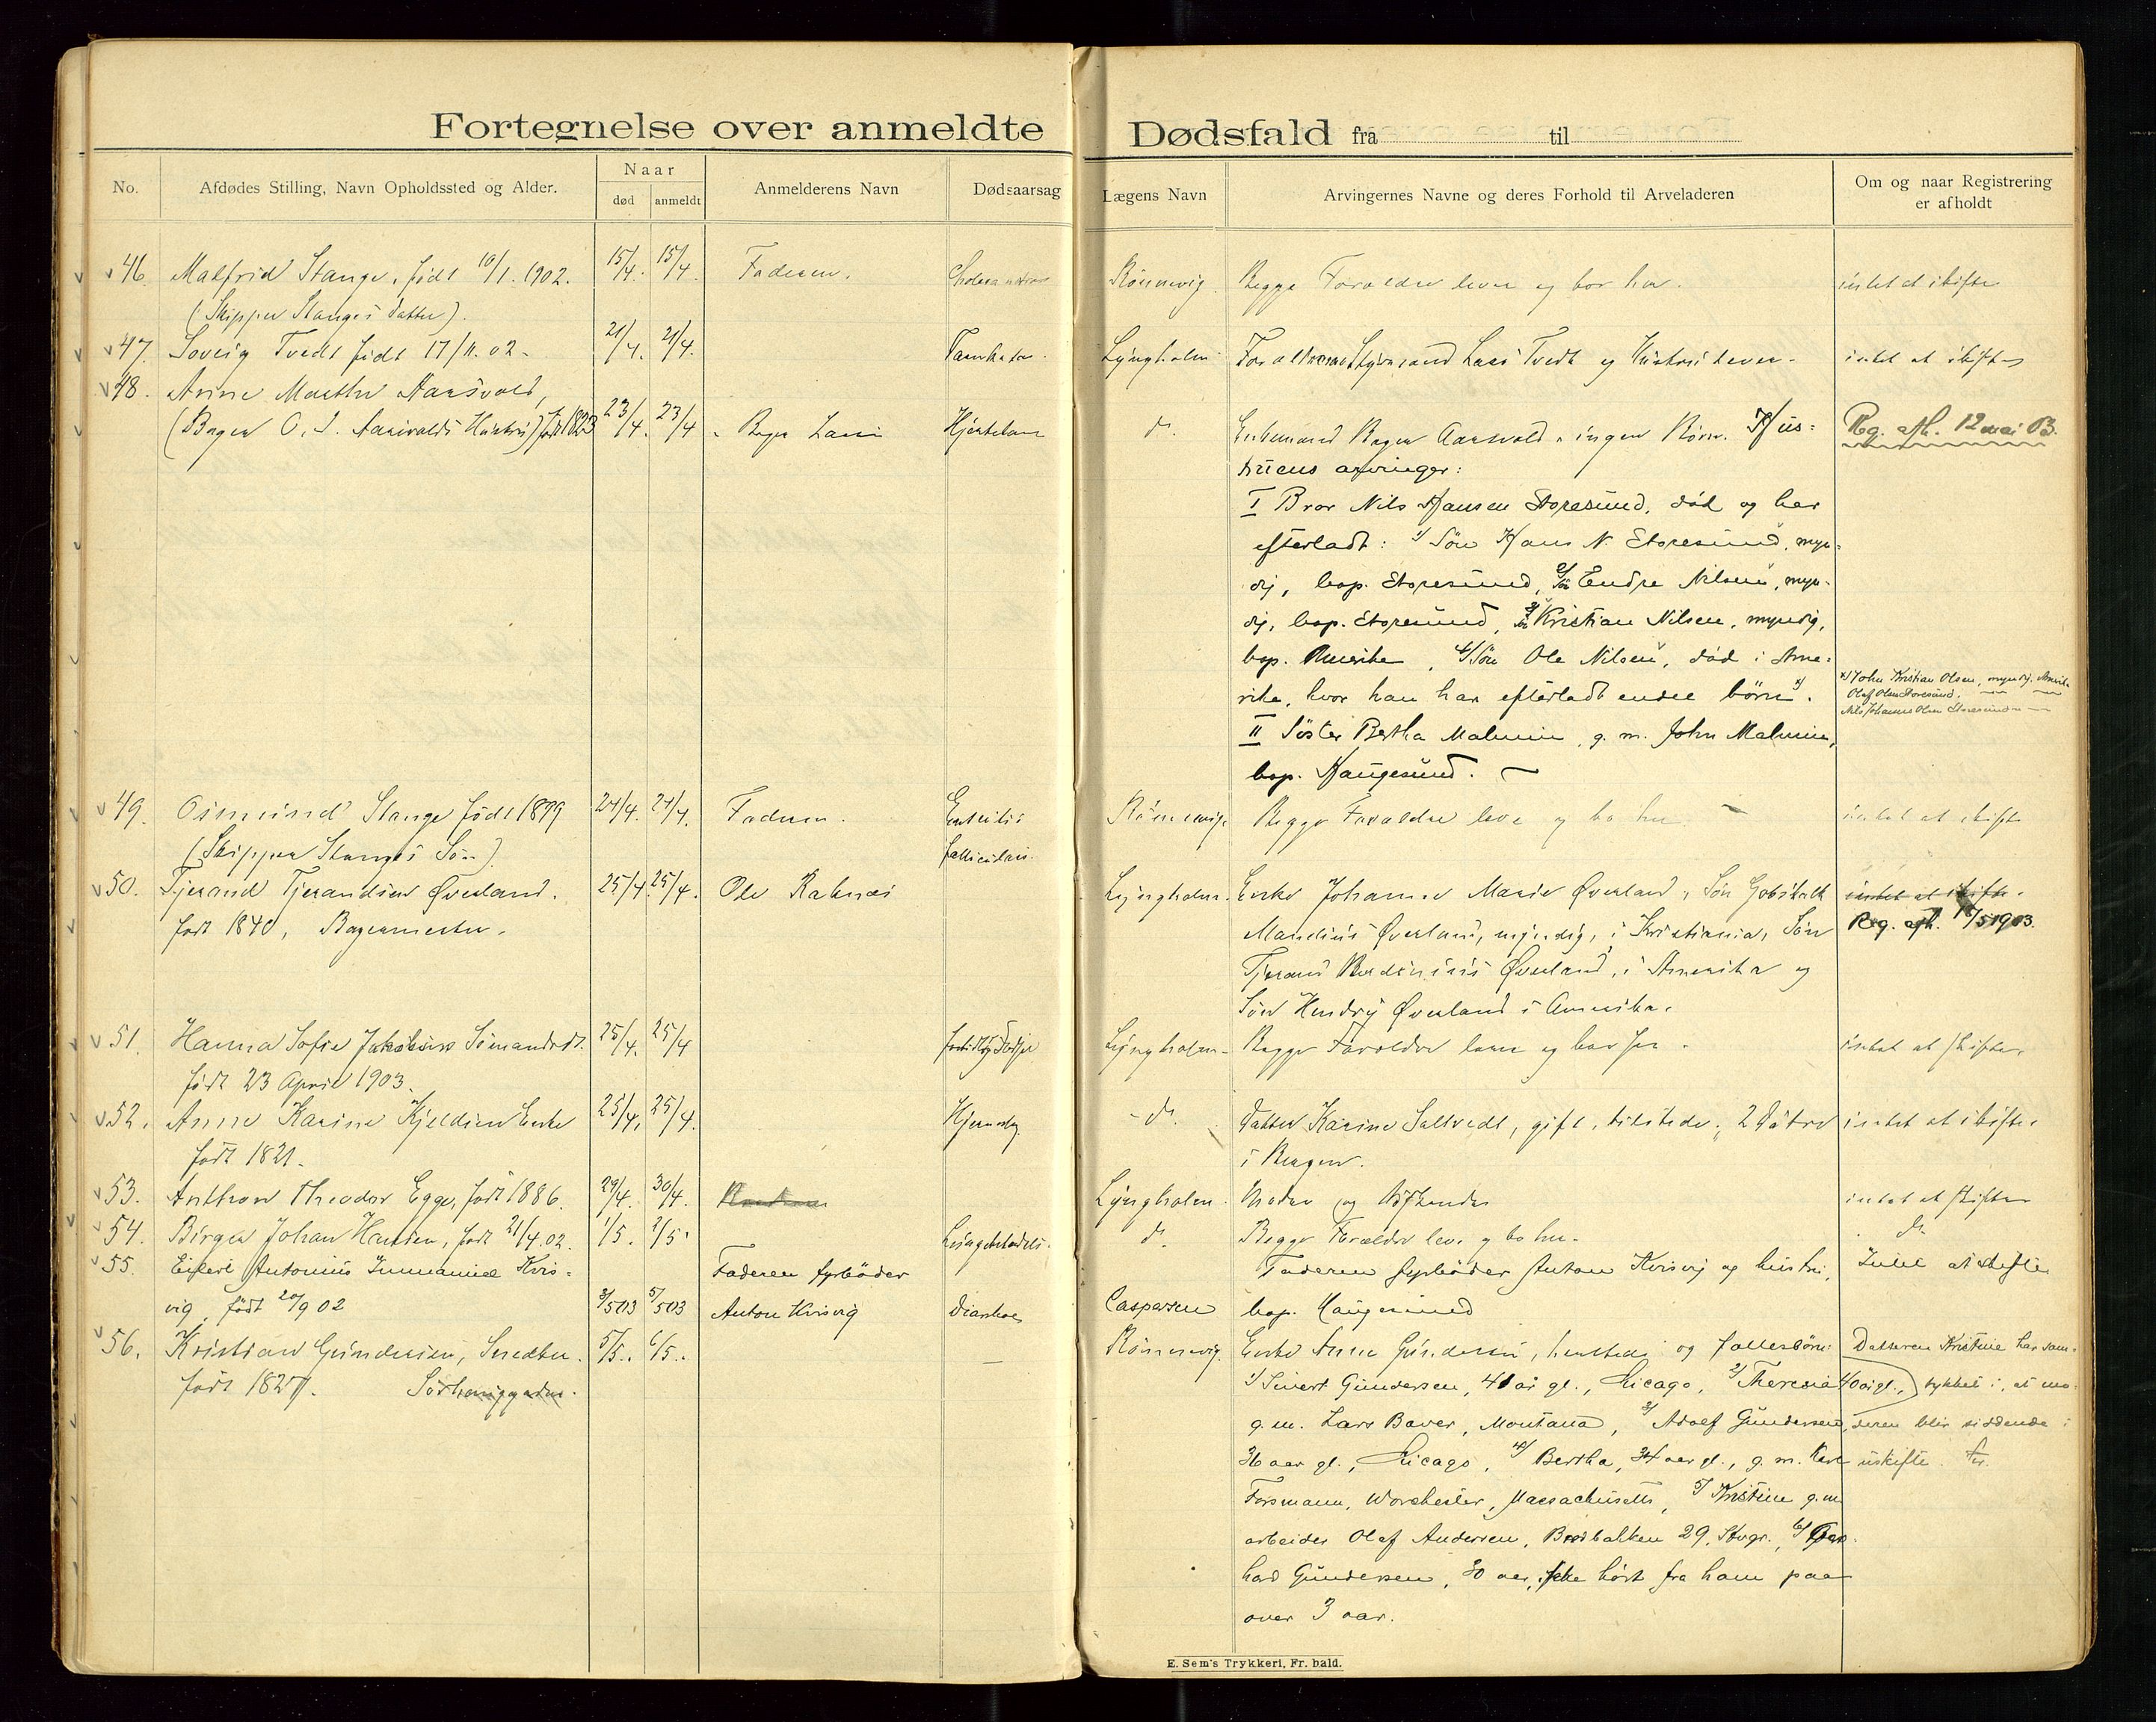 Fortegnelse over anmeldte Dødsfald fra til
No.
Afdødes Stilling, Navn Opholdssted og Alder.
Naar
død
anmeldt
Anmelderens Navn
Dødsaarsag
Lægens Navn
Arvingernes Navne og deres Forhold til Arveladeren
Om og naar Registrering
er afholdt
46. Malfrid Stange, født 10/1. 1902. 15/4. 15/4. Faderen. Rönnevig. Begge Forældre lever og bor her. intet at skifte
(Skipper Stanges datter).
47. Soveig Tvedt født 17/11. 02. 21/4. 21/4. Lÿngholm. Styrmand Lars Tvedt og Hustru lever. intet at skifte
48. Anne Marthe Aarsvold,
(Bager O. J. Aarsvolds Hustru) født 1823 23/4. 23/4 Hjertelam d. Enkemand Bager Aarsvold, ingen Børn. Hus-
truens arvinger: Reg. afh. 12 mai 03.
I Bror Nils Hansen Storesund, död og har
efterladt: 1/ Sön Hans N. Storesund, myn-
dig, bop. Storesund, 2/ Sön Endre Nilsen, myn-
dig, bop. Storesund, 3/ Sön Kristian Nilsen, myndig,
bop. Amerika, 4/ Sön Ole Nilsen, död i Ame-
rika, hvor han har efterladt endel börn x).
x) John Kristian Olsen, myndig, Amerika
Olaf Olsen Storesund.
Nils Johannes Olsen Storesund
II Söster Bertha Malmin, g. m. John Malmin,
bop. Haugesund.
49. Osmund Stange født 1899 24/4. 24/4. Faderen. Enteritis Rönnevig. Begge Forældre leve og bo her intet at skifte
(Skipper Stanges Sön) follicularis.
50. Tjerand Tjerandsen Øverland. 25/4 25/4. Ole Raknes Lÿngholm. Enke Johanne Marie Øverland, Sön Gotskalk intet at skifte.
født 1840, Bagermester. Mandius Øverland, myndig, i Kristiania, Sön Reg. afh. 18/5 1903.
Tjerand Øverland, i Amerika og
Sön Hendry Øverland i Amerika.
51. Hanna Sofie Jakobsen Sömandsdt. 25/4. 25/4 Lÿngholm. Begge Forældre lever og bor her. intet at skifte.
født 23 April 1903.
52. Anne Karine Kjeldsen Enke 25/4. 25/4. d. datter Karine Saltvedt, gift, tilstede, 2 Døtre intet at skifte.
født 1821. i Bergen.
53. Anthon Theodor Egge, født 1886. 29/4. 30/4. Lÿngholm. Moder og Söskende intet at skifte
54. Birger Johan Hansen, født 21/4. 02. 1/5. 2/5. d. Begge Forældre leve og bo her. d.
55. Eilert Antonius Immanuel Kvis- Faderen fyrböder Faderen fyrböder Anton Kvisvig og hustru, Intet at skifte
vig, født 20/9 02 3/5 03 5/5 03 Anton Kvisvig Diarrhoe Caspersen bop. Haugesund
56. Kristian Gundersen, Snedker. 5/5. 6/5. Rönnevig. Enke Anna Gundersen, herstede og fællesbörn: Datteren Kristine har sam-
født 1827. Sörhauggaden. 1/ Sivert Gundersen, 41 år gl., Chicago, 2/ Theresia 40 år gl., tykket i, at mo-
g. m. Lars Baver, Montana, 3/ Adolf Gundersen, deren blir siddende i
36 aar gl., Chicago, 4/ Bertha, 34 aar gl., g. m. Karl uskifte.
Forsmann, Worchester, Massachusetts, 5/ Kristine g. m.
arbeider Olaf Andersen, Bredbakken 29, Stvgr., 6/ Ger-
hard Gundersen, 30 aar, ikke hört fra ham paa
over 3 aar.
E. Sem's Trykkeri, Fr. hald.